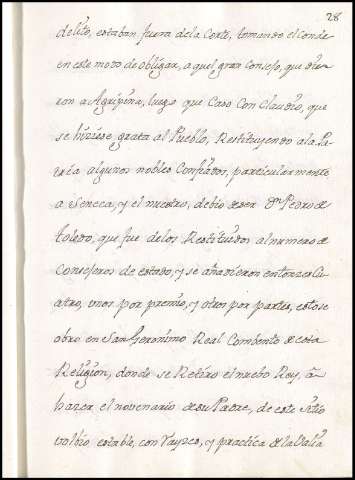 28
delito, estaban fuera dela Corte, tomando el Conde
en este modo de obligar, a quel gran Consejo, que die
ron a Agripina, luego que Caso Con Claudio, que
se hiziese grata al Pueblo, Restituyendo ala Pa
tria algunos nobles Confinados, particularmente
a Seneca, y el nuestro, debio de ser Dn Pedro de
toledo, que fue delos Restituidos al numero de
Consejeros de estado, y se añadieron entonzes Cu
atro, unos por premio, y otros por partes, esto se
obro en San Geronimo Real Combento de esta
Religion, donde se Retiro el nuebo Rey, á
hazer el novenario de su Padre, de este sitio
volbio estable, con
y practica de la Valia